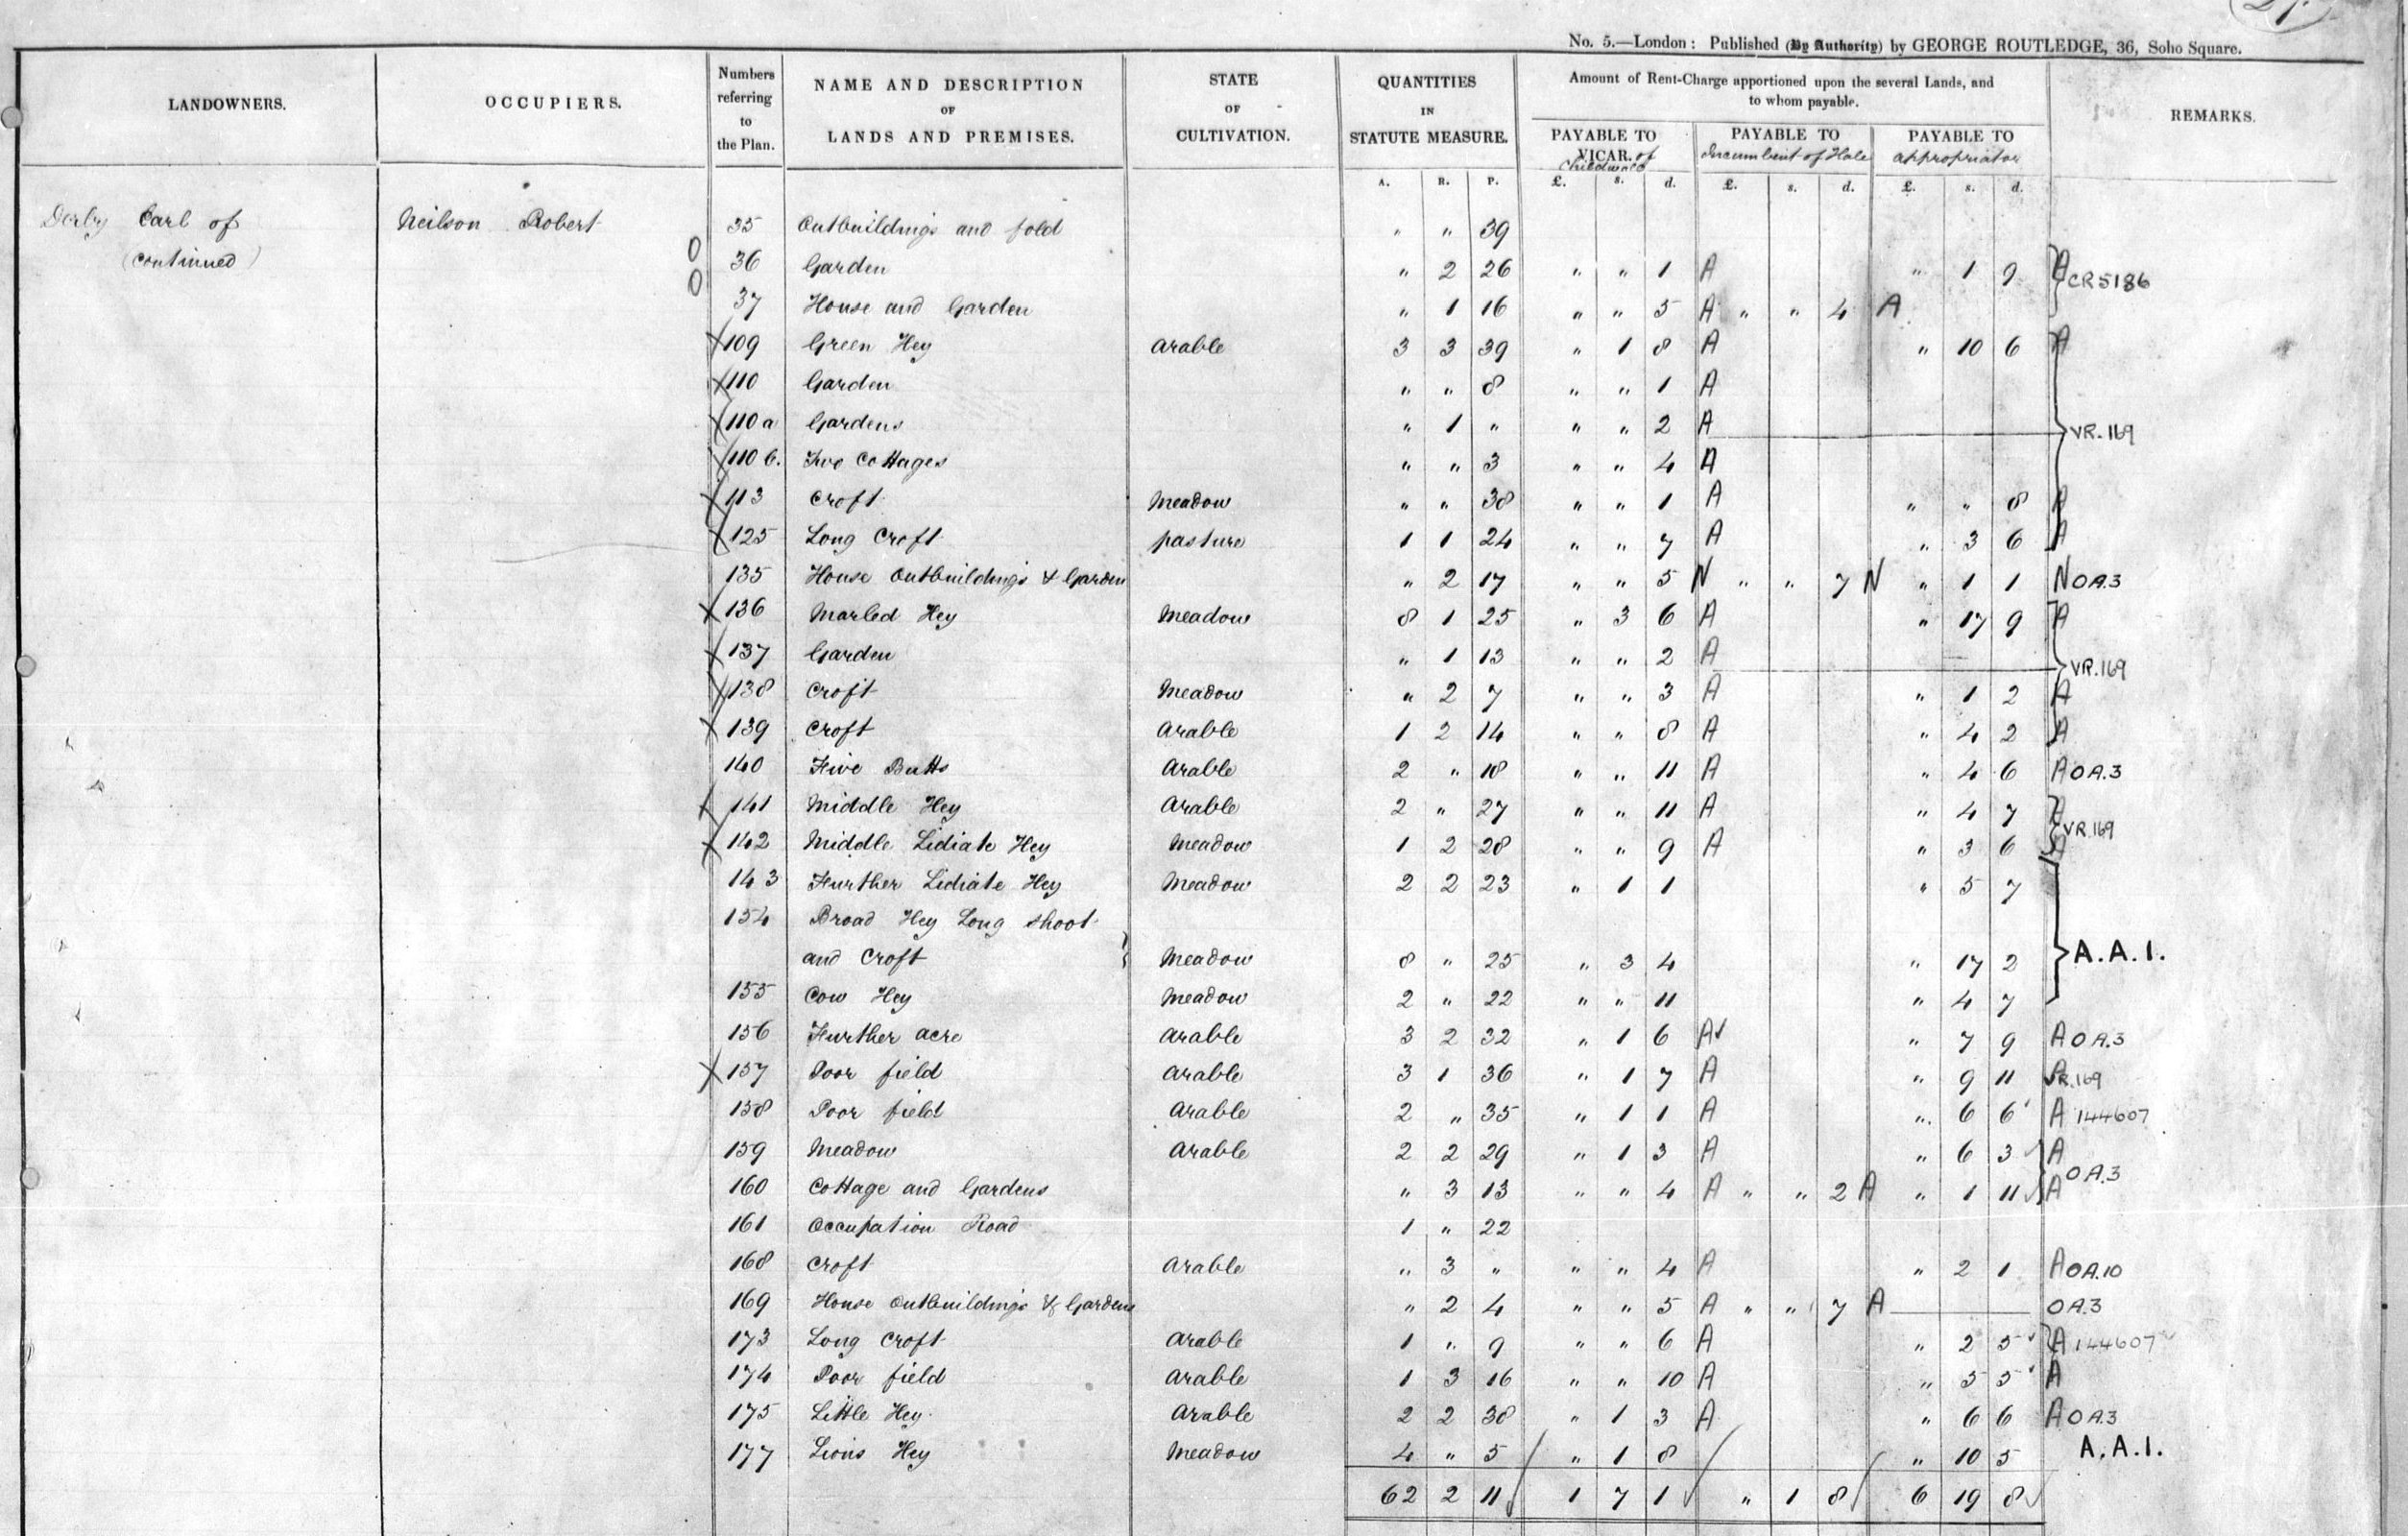 No. 5.—London: Published (By Authority) by GEORGE ROUTLEDGE, 36, Soho Square.
LANDOWNERS. OCCUPIERS. Numbers referring to the Plan. NAME AND DESCRIPTION OF LANDS AND PREMISES. STATE OF CULTIVATION. QUANTITIES IN STATUTE MEASURE. Amount of Rent-Charge apportioned upon the several Lands, and to whom payable. REMARKS.
PAYABLE TO VICAR. of Childwall PAYABLE TO Incumbent of Hale PAYABLE TO appropriator
A. R. P. £. s. d. £. s. d. £. s. d.
Derby Earl of Neilson Robert 35 Outbuildings and fold " " 39
(continued) 36 Garden " 2 26 " " 1 A " 1 9 A
CR5186
37 House and Garden " 1 16 " " 5 A " " 4 A
109 Green Hey Arable 3 3 39 " 1 8 A " 10 6 A
110 Garden " " 8 " " 1 A
110 a Gardens " 1 " " " 2 A VR.169
110 b. Two Cottages " " 3 " " 4 A
113 Croft Meadow " " 38 " " 1 A " " 8 A
125 Long Croft pasture 1 1 24 " " 7 A " 3 6 A
135 House Outbuildings & Garden " 2 17 " " 5 N " " 7 N " 1 1 N OA.3
136 Marled Hey Meadow 8 1 25 " 3 6 A " 17 9 A
137 Garden " 1 13 " " 2 A VR.169
138 Croft Meadow " 2 7 " " 3 A " 1 2 A
139 Croft Arable 1 2 14 " " 8 A " 4 2 A
140 Five Butts Arable 2 " 18 " " 11 A " 4 6 A OA.3
141 Middle Hey Arable 2 " 27 " " 11 A " 4 7 A
VR.169
142 Middle Lidiate Hey Meadow 1 2 28 " " 9 A " 3 6 A
143 Further Lidiate Hey Meadow 2 2 23 " 1 1 " 5 7
154 Broad Hey Long shoot
and Croft Meadow 8 " 25 " 3 4 " 17 2 A.A.1.
155 Cow Hey Meadow 2 " 22 " " 11 " 4 7
156 Further acre Arable 3 2 32 " 1 6 A " 7 9 A OA.3
157 Poor field Arable 3 1 36 " 1 7 A " 9 11 A VR.169
158 Poor field Arable 2 " 35 " 1 1 A " 6 6 A 144607
159 Meadow Arable 2 2 29 " 1 3 A " 6 3 A
OA.3
160 Cottage and Gardens " 3 13 " " 4 A " " 2 A " 1 11 A
161 Occupation Road 1 " 22
168 Croft Arable " 3 " " " 4 A " 2 1 A OA.10
169 House Outbuildings & Gardens " 2 4 " " 5 A " " 7 A OA.3
173 Long Croft Arable 1 " 9 " " 6 A " 2 5 A 144607
174 Poor field Arable 1 3 16 " " 10 A " 5 5 A
175 Little Hey Arable 2 2 38 " 1 3 A " 6 6 A OA.3
177 Lions Hey Meadow 4 " 5 " 1 8 " 10 5 A.A.1.
62 2 11 1 7 1 " 1 8 6 19 8